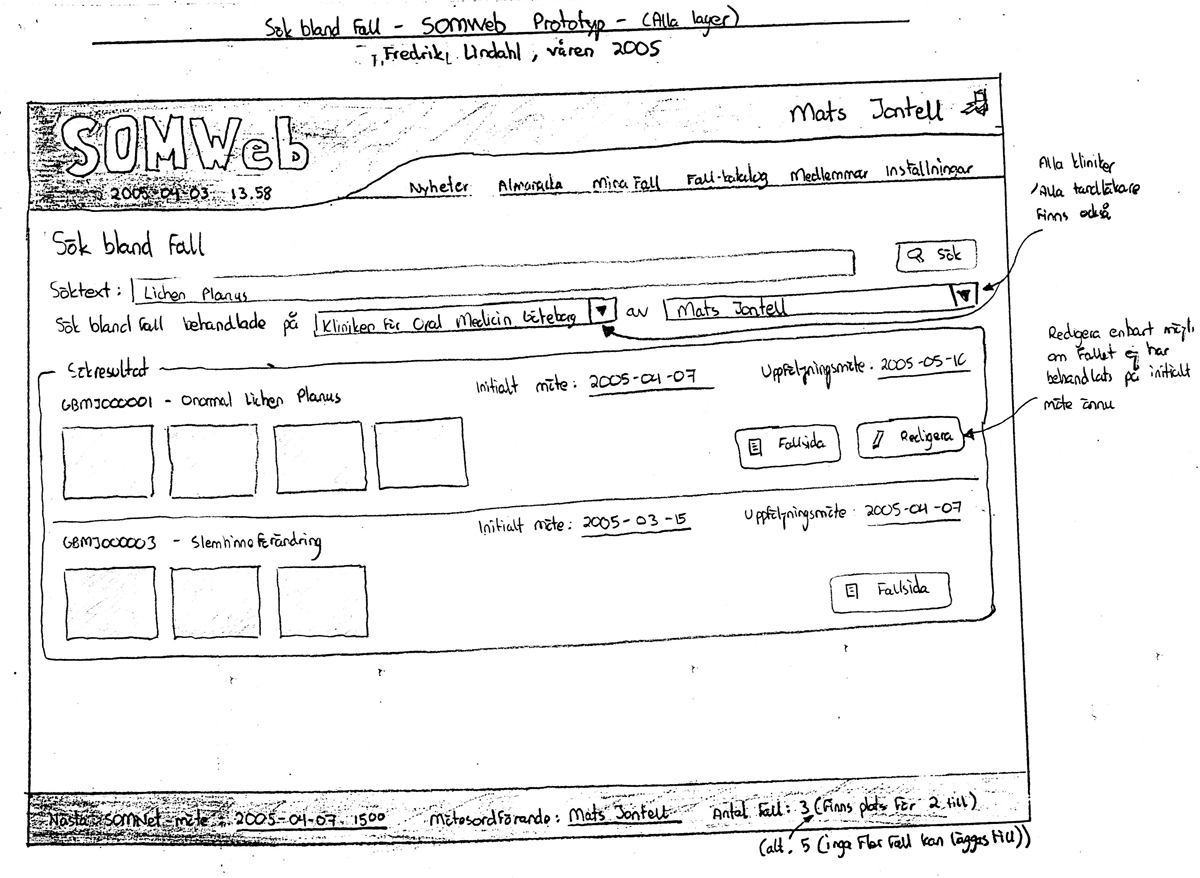 Sök bland Fall - SOMWeb Prototyp - (Alla lager)
Fredrik Lindahl, våren 2005
SOMWeb
Mats Jontell
2005-04-03 13.58
Nyheter Almanacka Mina Fall Fall-katalog Medlemmar Inställningar
Alla kliniker
/Alla tandläkare
Finns också
Sök bland Fall
Sök
Söktext: Lichen Planus
Sök bland Fall behandlade på Kliniken För Oral Medicin Göteborg av Mats Jontell
Redigera enbart möjl.
om Fallet ej har
behandlats på initialt
möte ännu
Sökresultat
Initialt möte: 2005-04-07 Uppföljningsmöte: 2005-05-10
GBMJ000001 - Onormal Lichen Planus
Fallsida Redigera
Initialt möte: 2005-03-15 Uppföljningsmöte: 2005-04-07
GBMJ000003 - Slemhinneförändring
Fallsida
Nästa SOMNet möte: 2005-04-07 1500 Mötesordförande: Mats Jontell Antal Fall: 3 (Finns plats För 2 till)
(alt. 5 (inga Fler Fall kan läggas till))